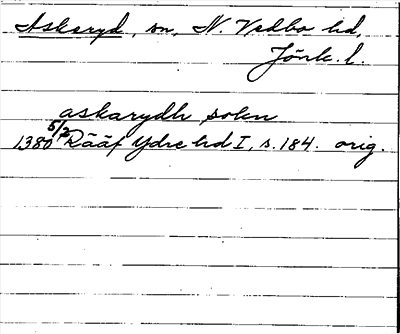 Askeryd, sn, N. Vedbo hd,
Jönk. l.
askarydh sokn
1380 5/2 Rääf Ydre hd I, s. 184. orig.